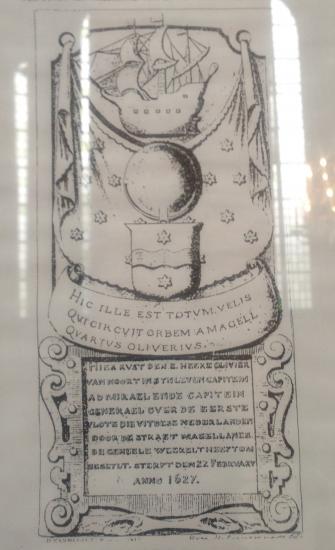 HIC ILLE EST TOTVM VELIS
QUI CIRCVIT ORBEM A MAGELL
QVARTUS OLIVERIUS.
HIER RVST DEN E. HEERE OLIVIER
VAN NOORT IN SYN LEVEN CAPITEIN
ADMIRAEL ENDE CAPITEIN
GENERAEL OVER DE EERSTE
VLOTE DIE VIT DESE NEDERLANDEN
DOOR DE STRAET MAGELLANES
DE GEHEELE WEERELT HEEFT OM
BESEYLT. STERFT DEN 22 FEBRUARY
ANNO 1627.